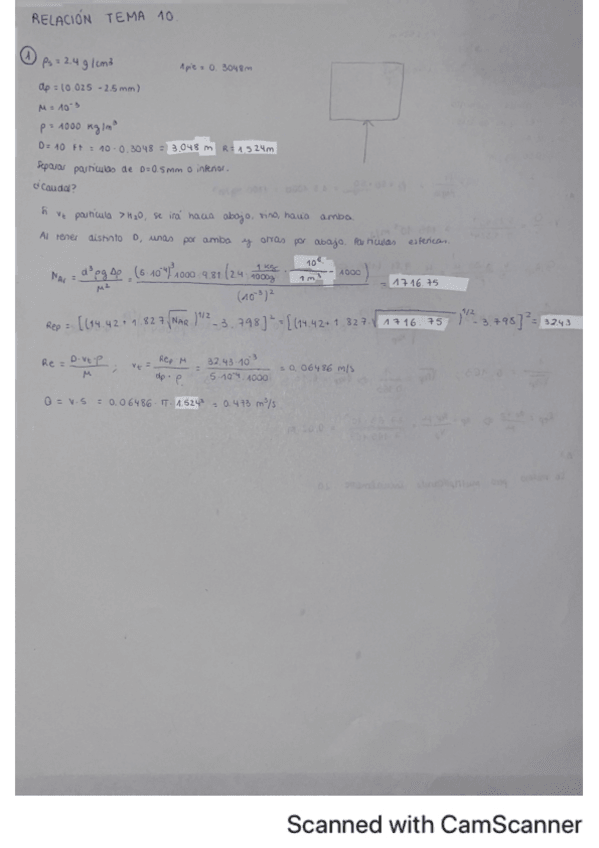 RELACIÓN TEMA 10.
① ρs = 2.4 g/cm³ 1 pie = 0.3048m
dp = (0.025 - 2.5 mm)
M = 10⁻³
ρ = 1000 Kg/m³
D = 10 ft = 10 · 0.3048 = 3.048 m R = 1.524m
Separar partículas de D=0.5mm o inferior.
¿Caudal?
Si vt partícula > H₂O, se irá hacia abajo, sino, hacia arriba.
Al tener distinto D, unas por arriba y otras por abajo. Partículas esféricas.
NAr = d³ρg Δρ / M² = (5·10⁻⁴)³ 1000 · 9.81 (2.4 · 1 Kg / 1000g · 10⁶ / 1 m³ - 1000) / (10⁻³)² = 1716.75
Rep = [(14.42 + 1.827 √NAR)^1/2 - 3.798]² = [(14.42 + 1.827 √1716.75)^1/2 - 3.798]² = 32.43
Re = D·vt·ρ / M ; vt = Rep·M / dp·ρ = 32.43·10⁻³ / 5·10⁻⁴·1000 = 0.06486 m/s
Q = v·S = 0.06486 · π · 1.524² = 0.473 m³/s
Scanned with CamScanner